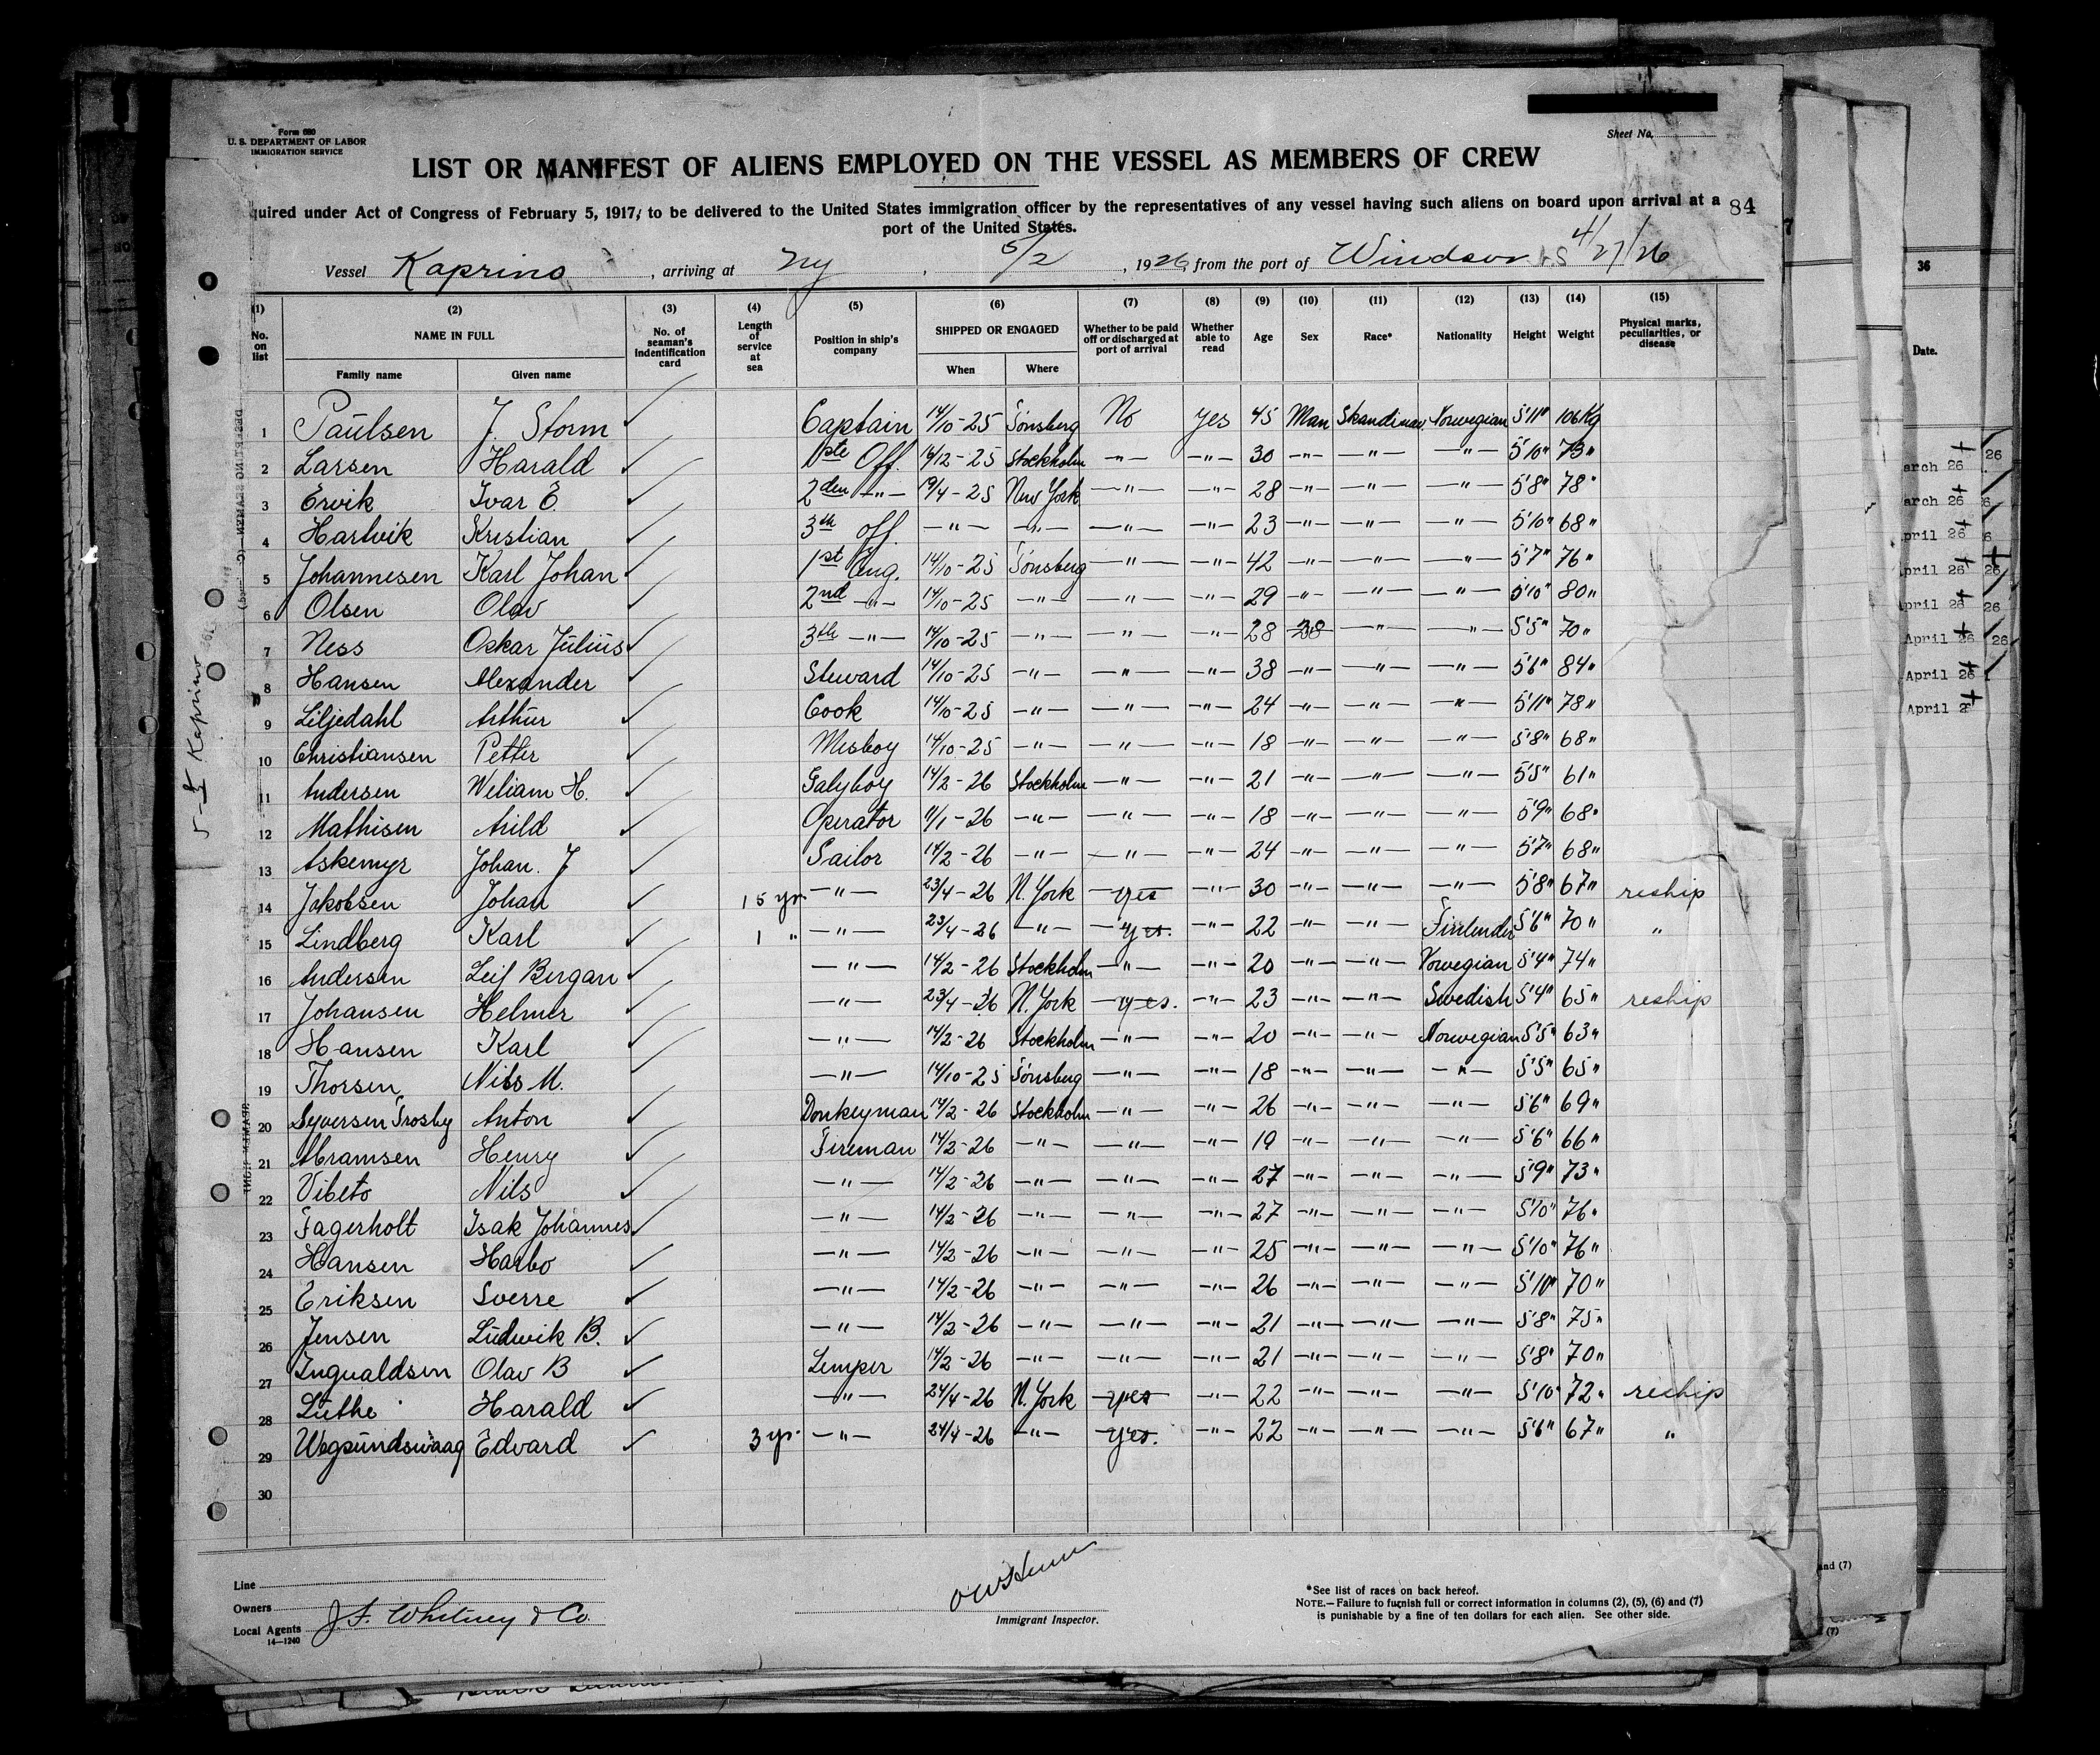 Form 680
U. S. DEPARTMENT OF LABOR
IMMIGRATION SERVICE
Sheet No.
LIST OR MANIFEST OF ALIENS EMPLOYED ON THE VESSEL AS MEMBERS OF CREW
quired under Act of Congress of February 5, 1917, to be delivered to the United States immigration officer by the representatives of any vessel having such aliens on board upon arrival at a 84
port of the United States.
Vessel Kaprino, arriving at NY, 5/2, 1926, from the port of Windsor NS 4/27/26
(1) (2) (3) (4) (5) (6) (7) (8) (9) (10) (11) (12) (13) (14) (15)
No. on list NAME IN FULL Family name Given name No. of seaman's indentification card Length of service at sea Position in ship's company SHIPPED OR ENGAGED When Where Whether to be paid off or discharged at port of arrival Whether able to read Age Sex Race* Nationality Height Weight Physical marks, peculiarities, or disease
1 Paulsen J. Storm ✓ Captain 14/10-25 Tönsberg No yes 45 Man Skandinav. Norwegian 5'11" 106Kg
2 Larsen Harald ✓ 1ste Off. 16/12-25 Stockholm -"- -"- 30 -"- -"- -"- 5'10" 73"
3 Ervik Ivar E. ✓ 2den -"- 19/4-25 New York -"- -"- 28 -"- -"- -"- 5'8" 78"
4 Hartvik Kristian ✓ 3th off. -"- -"- -"- -"- 23 -"- -"- -"- 5'10" 68"
5 Johannesen Karl Johan ✓ 1st Eng. 14/10-25 Tönsberg -"- -"- 42 -"- -"- -"- 5'7" 76"
6 Olsen Olav ✓ 2nd -"- 14/10-25 -"- -"- -"- 29 -"- -"- -"- 5'10" 80"
7 Ness Oskar Julius ✓ 3th -"- 14/10-25 -"- -"- -"- 28 38 -"- -"- 5'5" 70"
8 Hansen Alexander ✓ Steward 14/10-25 -"- -"- -"- 38 -"- -"- -"- 5'6" 84"
9 Liljedahl Arthur ✓ Cook 14/10-25 -"- -"- -"- 24 -"- -"- -"- 5'11" 78"
10 Christiansen Petter ✓ Mesboy 14/10-25 -"- -"- -"- 18 -"- -"- -"- 5'8" 68"
11 Andersen Weliam H. ✓ Galyboy 14/2-26 Stockholm -"- 21 -"- -"- -"- 5'5" 61"
12 Mathisen Arild ✓ Operator 11/1-26 -"- -"- -"- 18 -"- -"- -"- 5'9" 68"
13 Askemyr Johan. J ✓ Sailor 14/2-26 -"- -"- -"- 24 -"- -"- -"- 5'7" 68"
14 Jakobsen Johan ✓ 15 yrs -"- 23/4-26 N. York yes -"- 30 -"- -"- -"- 5'8" 67" reship
15 Lindberg Karl ✓ 1 " -"- 23/4-26 -"- yes. -"- 22 -"- -"- Finlender 5'6" 70" "
16 Andersen Leif Bergan ✓ -"- 14/2-26 Stockholm -"- -"- 20 -"- -"- Norwegian 5'4" 74"
17 Johansen Helmer ✓ -"- 23/4-26 N. York yes. -"- 23 -"- -"- Swedish 5'4" 65" reship
18 Hansen Karl ✓ -"- 14/2-26 Stockholm -"- -"- 20 -"- -"- Norwegian 5'5" 63"
19 Thorsen Nils M. ✓ -"- 14/10-25 Tönsberg -"- -"- 18 -"- -"- -"- 5'5" 65"
20 Syversen Trosby Anton ✓ Donkeyman 14/2-26 Stockholm -"- -"- 26 -"- -"- -"- 5'6" 69"
21 Abramsen Henry ✓ Fireman 14/2-26 -"- -"- -"- 19 -"- -"- -"- 5'6" 66"
22 Vibeto Nils ✓ -"- 14/2-26 -"- -"- -"- 27 -"- -"- -"- 5'9" 73"
23 Fagerholt Isak Johannes ✓ -"- 14/2-26 -"- -"- -"- 27 -"- -"- -"- 5'10" 76"
24 Hansen Harbo ✓ -"- 14/2-26 -"- -"- -"- 25 -"- -"- -"- 5'10" 76"
25 Eriksen Sverre ✓ -"- 14/2-26 -"- -"- -"- 26 -"- -"- -"- 5'10" 70"
26 Jensen Ludwik B. ✓ -"- 14/2-26 -"- -"- -"- 21 -"- -"- -"- 5'8" 75"
27 Ingvaldsen Olav B ✓ Lemper 14/2-26 -"- -"- -"- 21 -"- -"- -"- 5'8" 70"
28 Luthe Harald ✓ -"- 24/4-26 N. York yes -"- 22 -"- -"- -"- 5'10" 72" reship
29 Wegsundswaag Edvard ✓ 3 yr. -"- 24/4-26 -"- yes. -"- 22 -"- -"- -"- 5'6" 67" "
30
Line
Owners
Local Agents J. F. Whitney & Co.
14—1240
Immigrant Inspector.
*See list of races on back hereof.
NOTE.—Failure to furnish full or correct information in columns (2), (5), (6) and (7)
is punishable by a fine of ten dollars for each alien. See other side.
Kaprino
36
Date.
arch 26
arch 26
pril 26
pril 26
April 26
April 26
April 26
April 2
and (7)
(7)